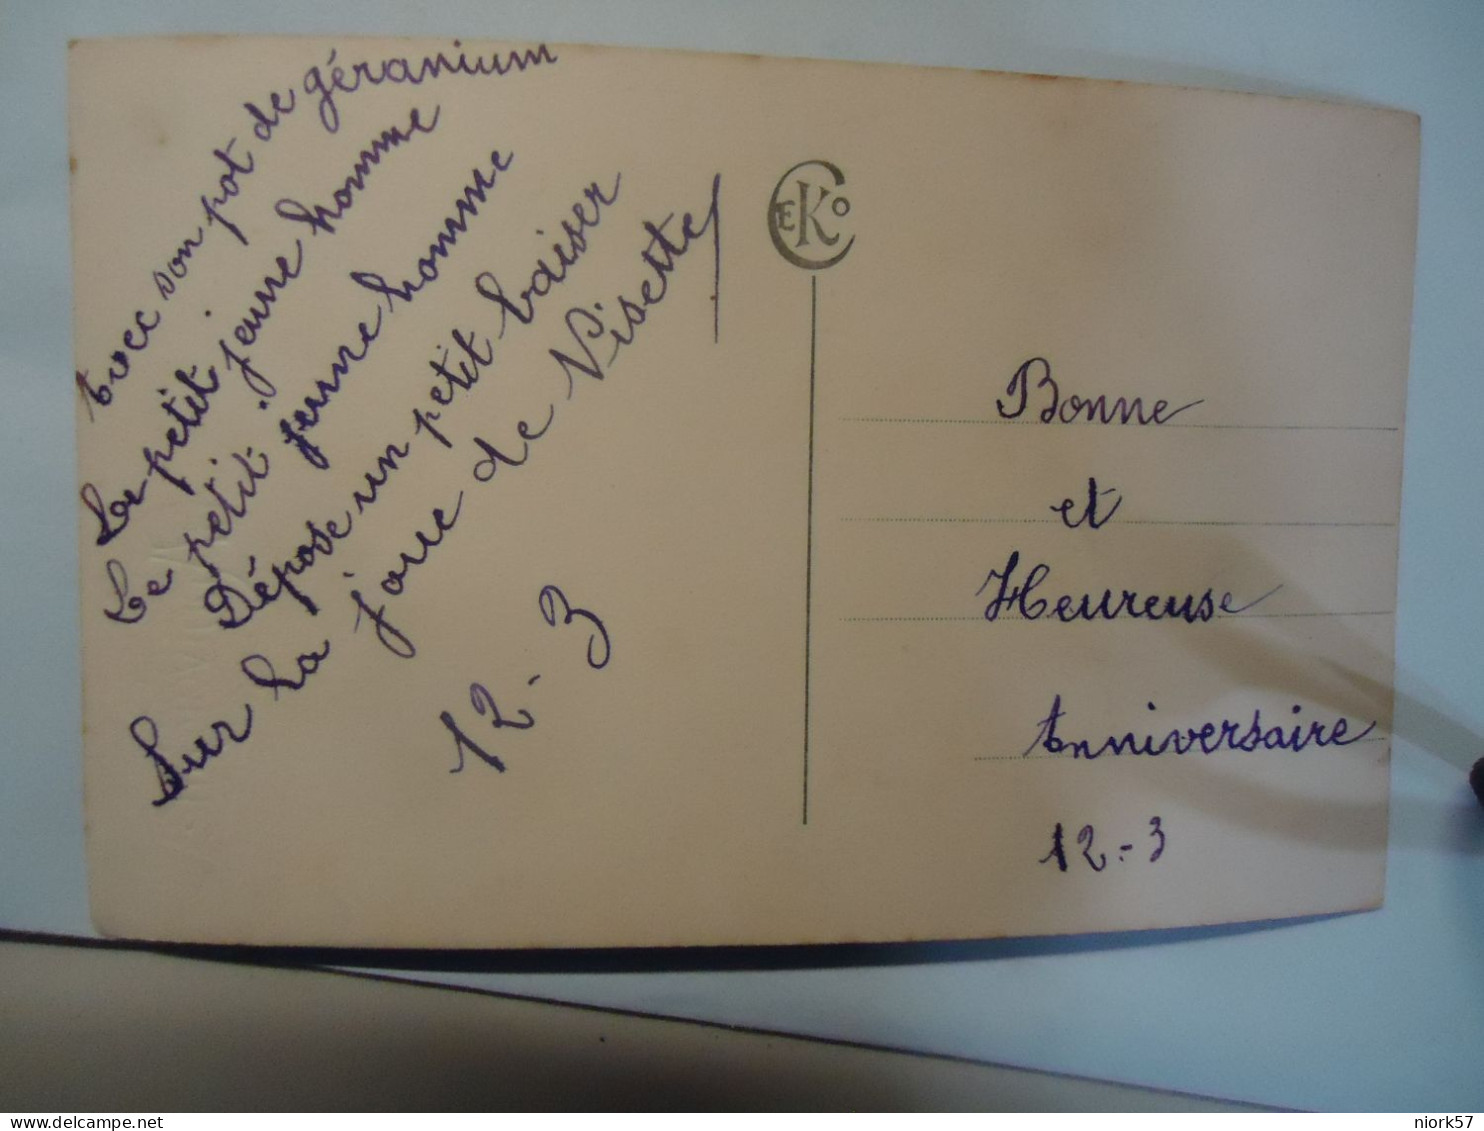 Avec son pot de géranium
Le petit jeune homme
Le petit jeune homme
Dépose un petit baiser
Sur la joue de Nisette
12-3
CEKO
Bonne
et
Heureuse
Anniversaire
12-3
delcampe.net
niork57